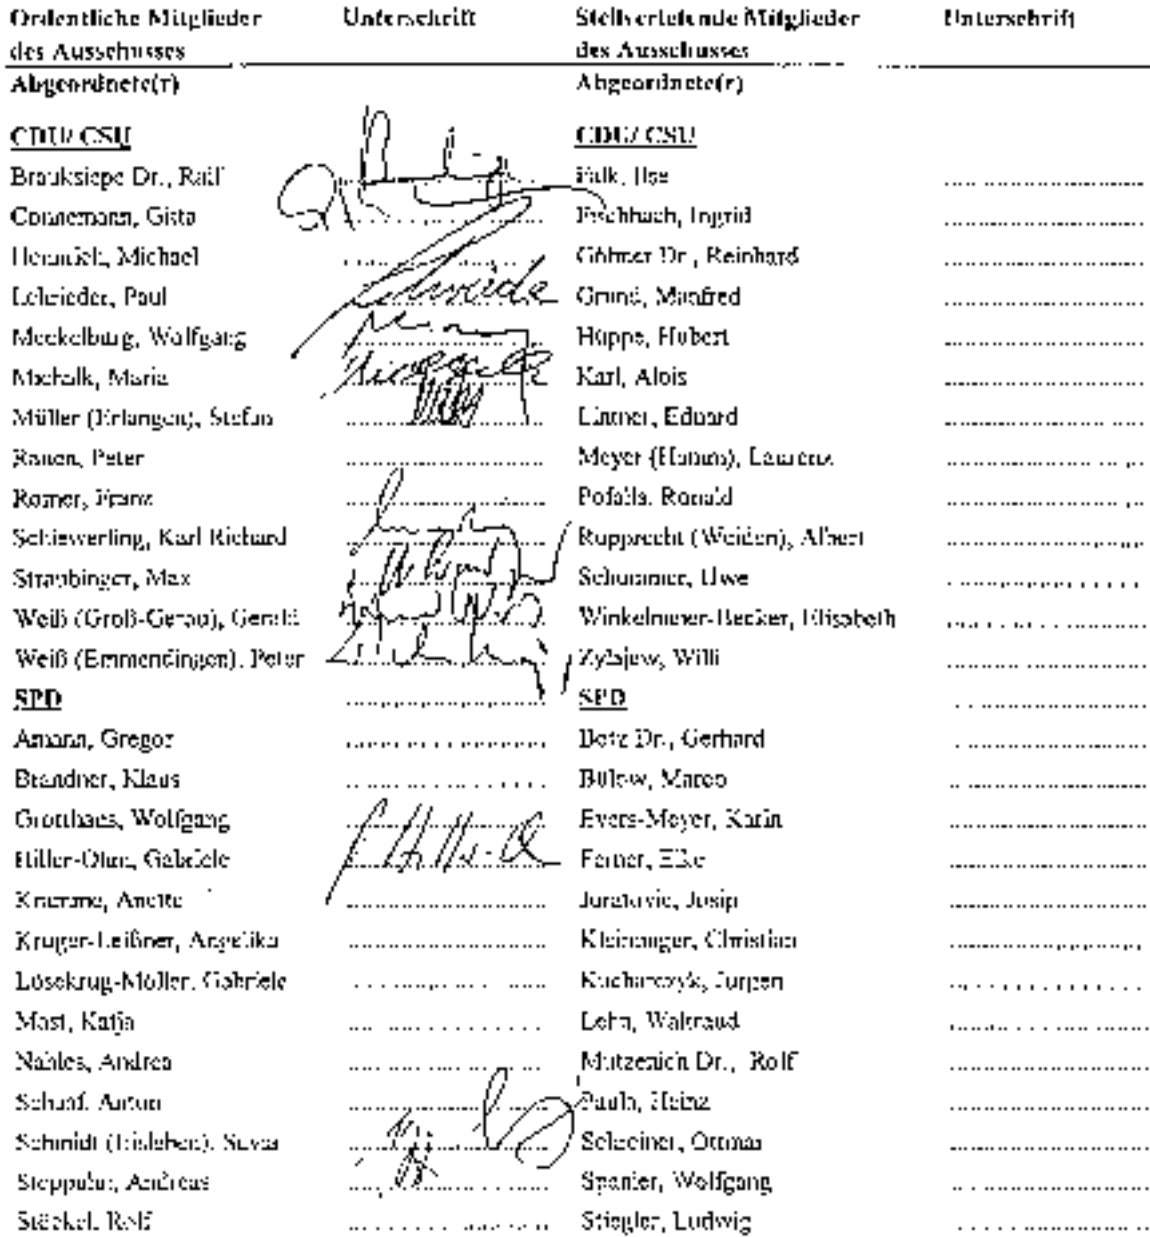 Ordentliche Mitglieder Unterschrift Stellvertretende Mitglieder Unterschrift
des Ausschusses des Ausschusses
Abgeordnete(r) Abgeordnete(r)
CDU/ CSU CDU/ CSU
Brauksiepe Dr., Ralf Falk, Ilse
Connemann, Gitta Fischbach, Ingrid
Hennrich, Michael Göhner Dr., Reinhard
Lehrieder, Paul Grund, Manfred
Meckelburg, Wolfgang Hüppe, Hubert
Michalk, Maria Karl, Alois
Müller (Erlangen), Stefan Lintner, Eduard
Rauen, Peter Meyer (Hamm), Laurenz
Romer, Franz Pofalla, Ronald
Schiewerling, Karl Richard Rupprecht (Weiden), Albert
Straubinger, Max Schummer, Uwe
Weiß (Groß-Gerau), Gerald Winkelmeier-Becker, Elisabeth
Weiß (Emmendingen), Peter Zylajew, Willi
SPD SPD
Amann, Gregor Botz Dr., Gerhard
Brandner, Klaus Bülow, Marco
Grotthaus, Wolfgang Evers-Meyer, Karin
Hiller-Ohm, Gabriele Ferner, Elke
Kramme, Anette Juratovic, Josip
Krüger-Leißner, Angelika Kleiminger, Christian
Lösekrug-Möller, Gabriele Kucharczyk, Jürgen
Mast, Katja Lehn, Waltraud
Nahles, Andrea Mützenich Dr., Rolf
Schaaf, Anton Paula, Heinz
Schmidt (Eisleben), Silvia Schreiner, Ottmar
Steppuhn, Andreas Spanier, Wolfgang
Stöckel, Rolf Stiegler, Ludwig